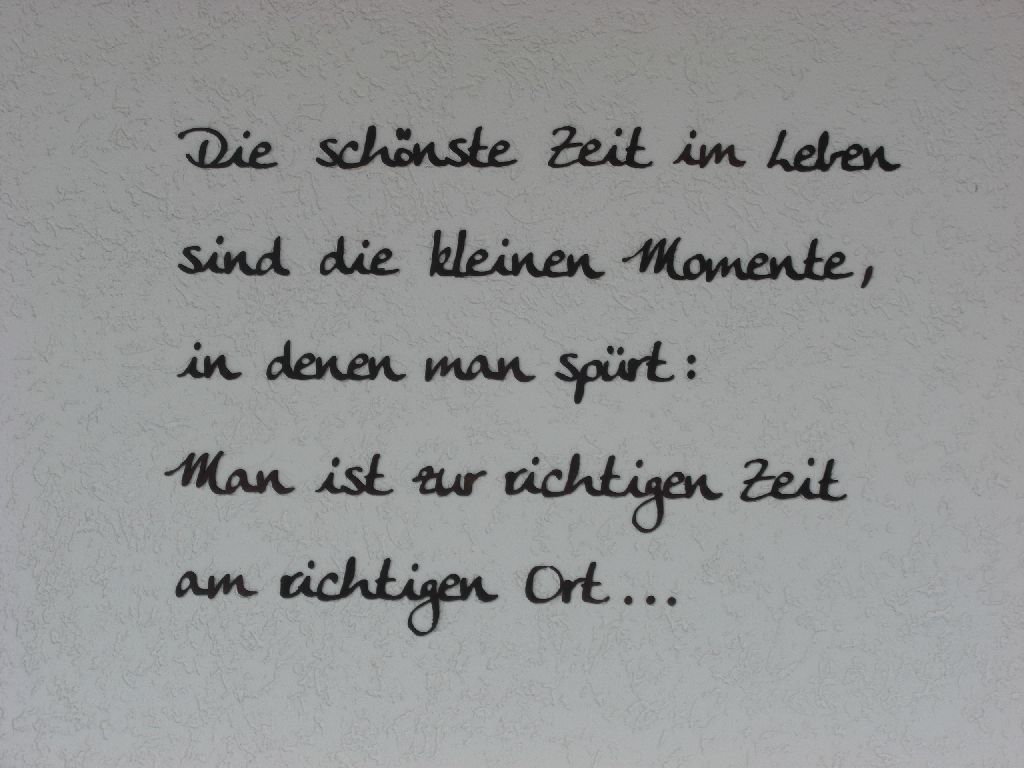 Die schönste Zeit im Leben
sind die kleinen Momente,
in denen man spürt:
Man ist zur richtigen Zeit
am richtigen Ort...